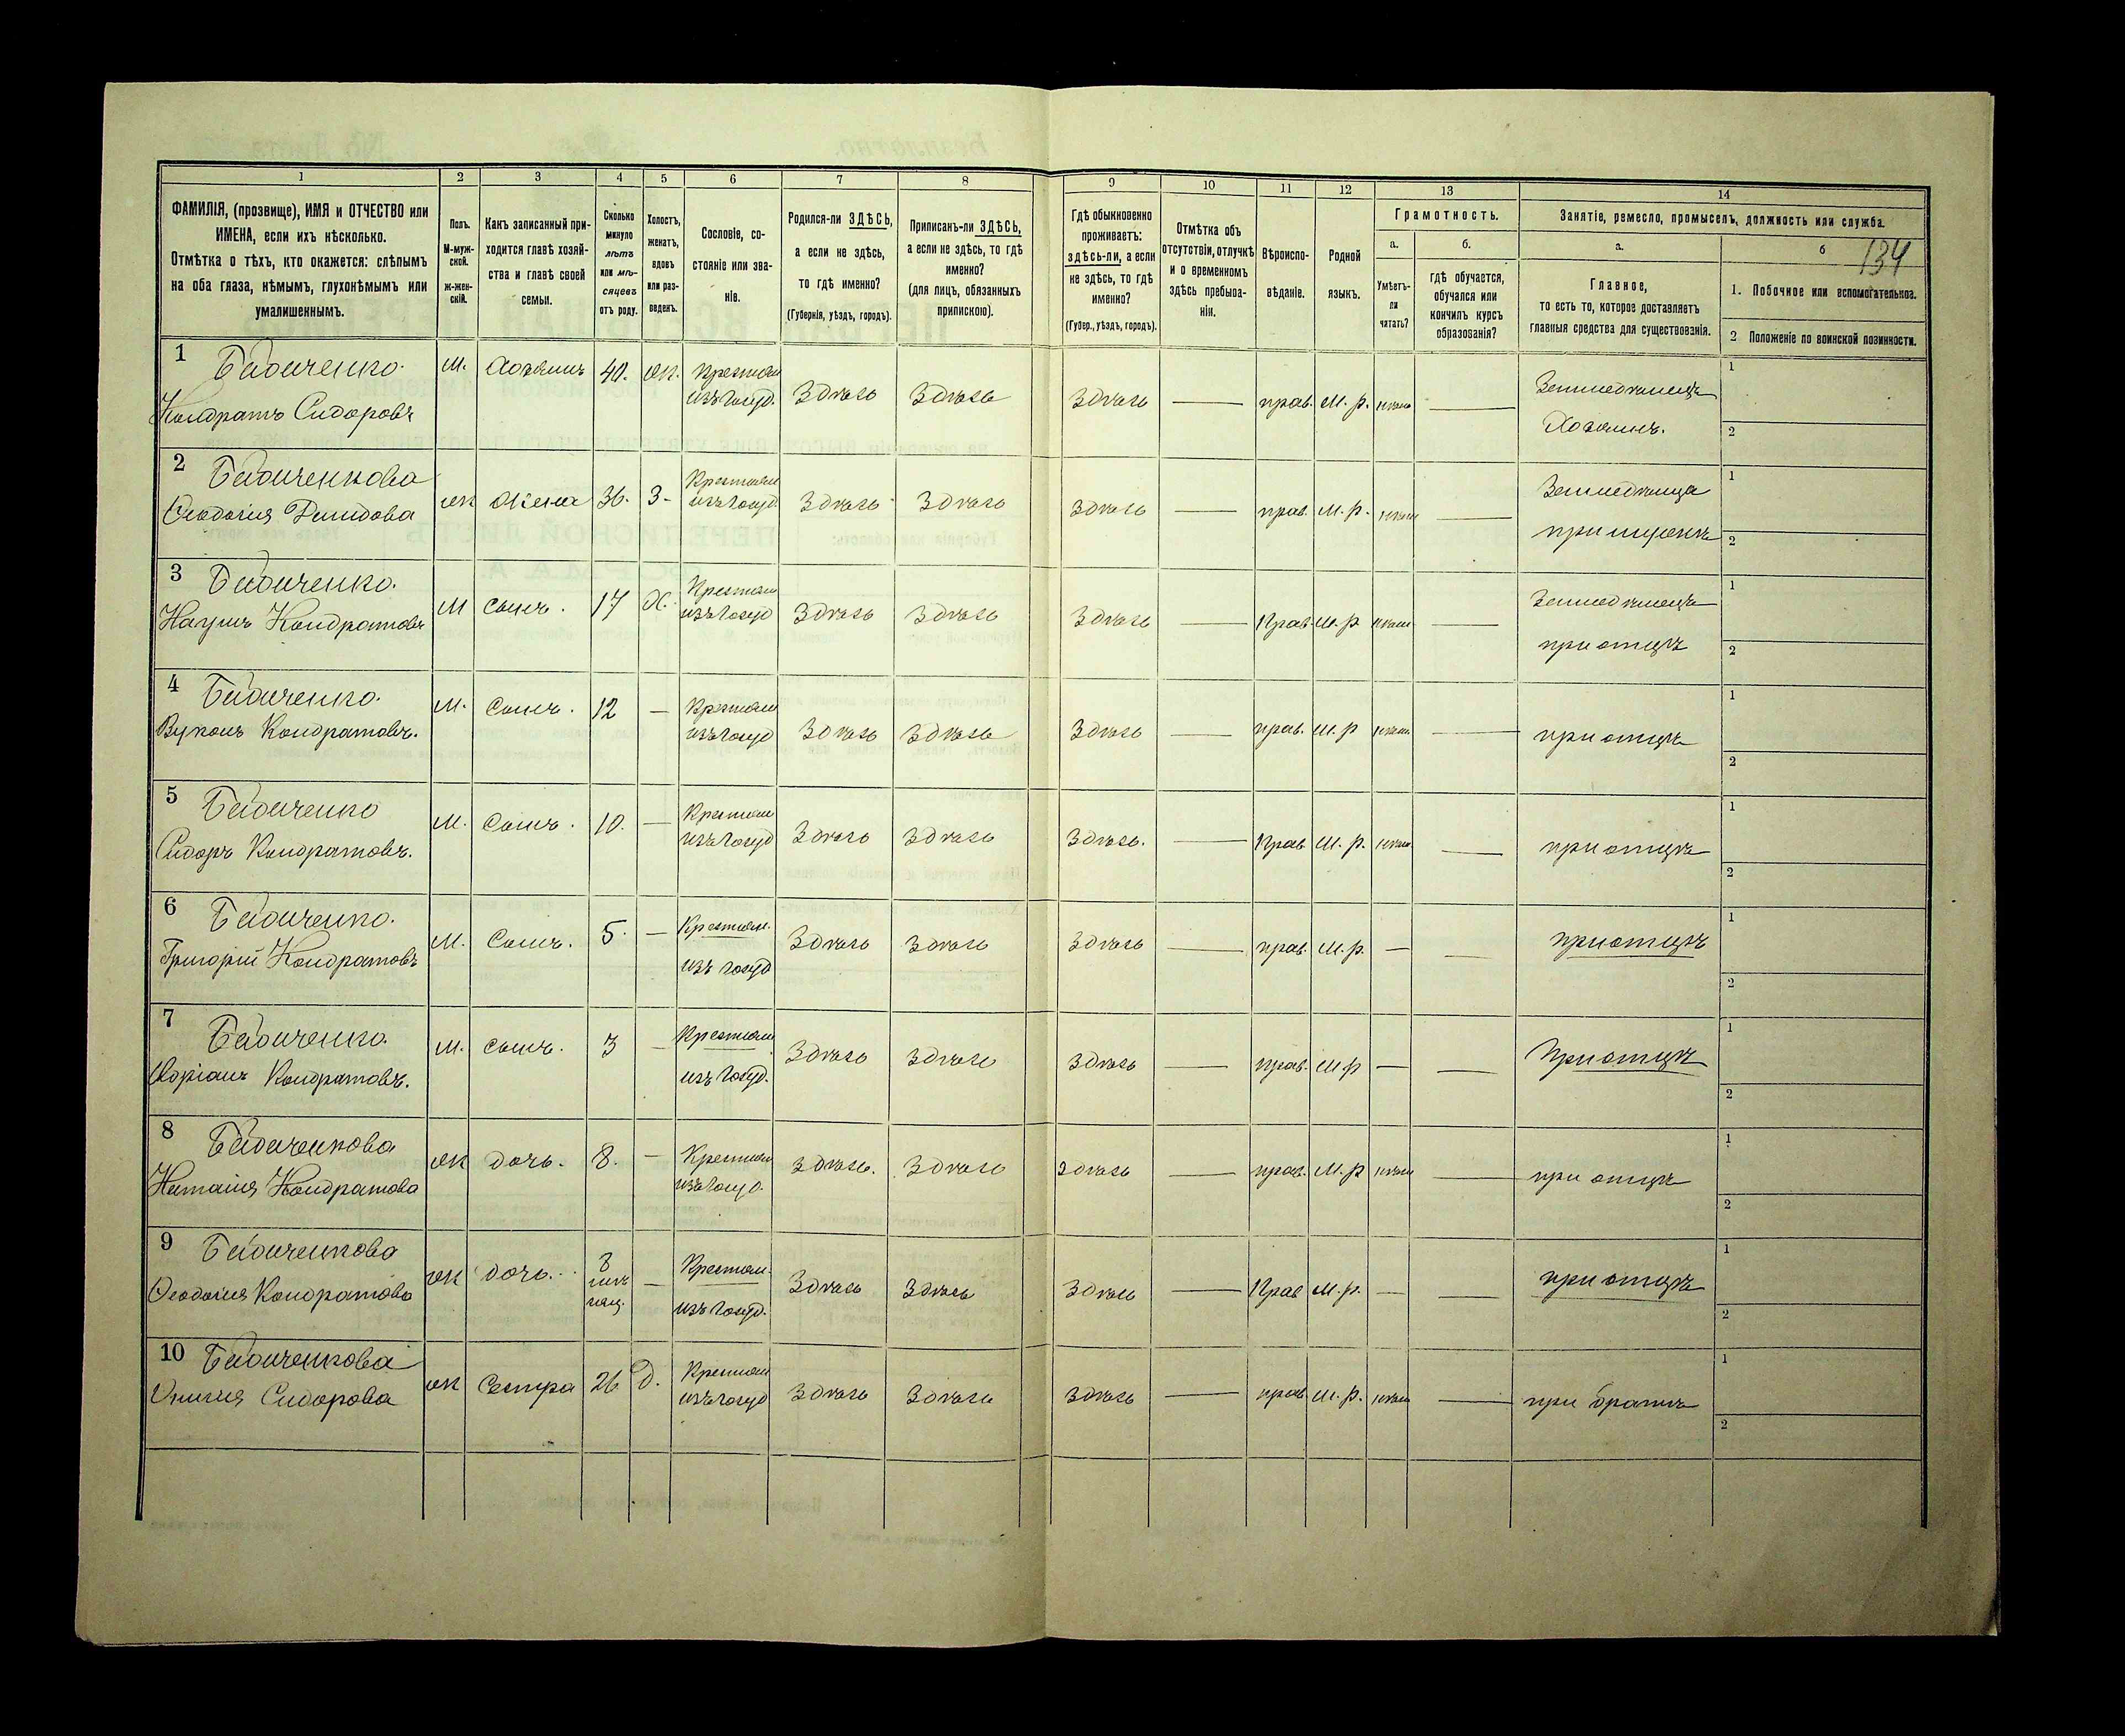 134
1 2 3 4 5 6 7 8 9 10 11 12 13 14
ФАМИЛІЯ, (прозвище), ИМЯ и ОТЧЕСТВО или
ИМЕНА, если ихъ нѣсколько.
Отмѣтка о тѣхъ, кто окажется: слѣпымъ
на оба глаза, нѣмымъ, глухонѣмымъ или
умалишеннымъ.
Полъ.
М-муж-
ской.
ж-жен-
скій.
Какъ записанный при-
ходится главѣ хозяй-
ства и главѣ своей
семьи.
Сколько
минуло
лѣтъ
или мѣ-
сяцевъ
отъ роду.
Холостъ,
женатъ,
вдовъ
или раз-
веденъ.
Сословіе, со-
стояніе или зва-
ніе.
Родился-ли ЗДѢСЬ,
а если не здѣсь,
то гдѣ именно?
(Губернія, уѣздъ, городъ).
Приписанъ-ли ЗДѢСЬ,
а если не здѣсь, то гдѣ
именно?
(для лицъ, обязанныхъ
припискою).
Гдѣ обыкновенно
проживаетъ:
здѣсь-ли, а если
не здѣсь, то гдѣ
именно?
(Губер., уѣздъ, городъ).
Отмѣтка объ
отсутствіи, отлучкѣ
и о временномъ
здѣсь пребыва-
ніи.
Вѣроиспо-
вѣданіе.
Родной
языкъ.
Грамотность.
а.
Умѣетъ-
ли
читать?
б.
гдѣ обучается,
обучался или
кончилъ курсъ
образованія?
Занятіе, ремесло, промыселъ, должность или служба.
а.
Главное,
то есть то, которое доставляетъ
главныя средства для существованія.
б
1. Побочное или вспомогательное.
2 Положеніе по воинской повинности.
1 м. Хозяинъ 40. жн. Крестьян Здѣсь Здѣсь Здѣсь — прав. М. р. — Земледѣлецъ 1
Кондратъ Сидоровъ изъ Госуд. Хозяинъ. 2
2 жн жена 36. З- Крестьян Здѣсь Здѣсь Здѣсь — прав. М. р. — 1
Ѳеодосія изъ Госуд. 2
3 М сынъ. 17 Х. Крестьян Здѣсь Здѣсь Здѣсь — Прав. М. р — Земледѣлецъ 1
Наумъ Кондратовъ изъ Госуд при отцѣ 2
4 М. Сынъ. 12 — Крестьян Здѣсь Здѣсь Здѣсь — прав. М. р — при отцѣ 1
Кондратовъ. изъ Госуд 2
5 М. Сынъ. 10. — Крестьян Здѣсь Здѣсь Здѣсь. — Прав М. р. — при отцѣ 1
Сидоръ Кондратовъ. изъ Госуд 2
6 М. Сынъ. 5. — Крестьян. Здѣсь Здѣсь Здѣсь — прав. М. р. — — при отцѣ 1
Григорій Кондратовъ изъ Госуд 2
7 М. Сынъ. 3 — Крестьян Здѣсь Здѣсь Здѣсь — прав. М р — — При отцѣ 1
Кондратовъ. изъ Госуд. 2
8 жн дочь. 8. — Крестьян Здѣсь. Здѣсь Здѣсь — прав. М. р — при отцѣ 1
Наталія Кондратова изъ Госуд. 2
9 жн дочь. — Крестьян. Здѣсь Здѣсь Здѣсь — Прав М. р. — — при отцѣ 1
Ѳеодосія Кондратова изъ Госуд. 2
10 жн Сестра 26 Д. Крестьян Здѣсь Здѣсь Здѣсь — прав. М. р. — при братѣ 1
Сидорова изъ Госуд 2